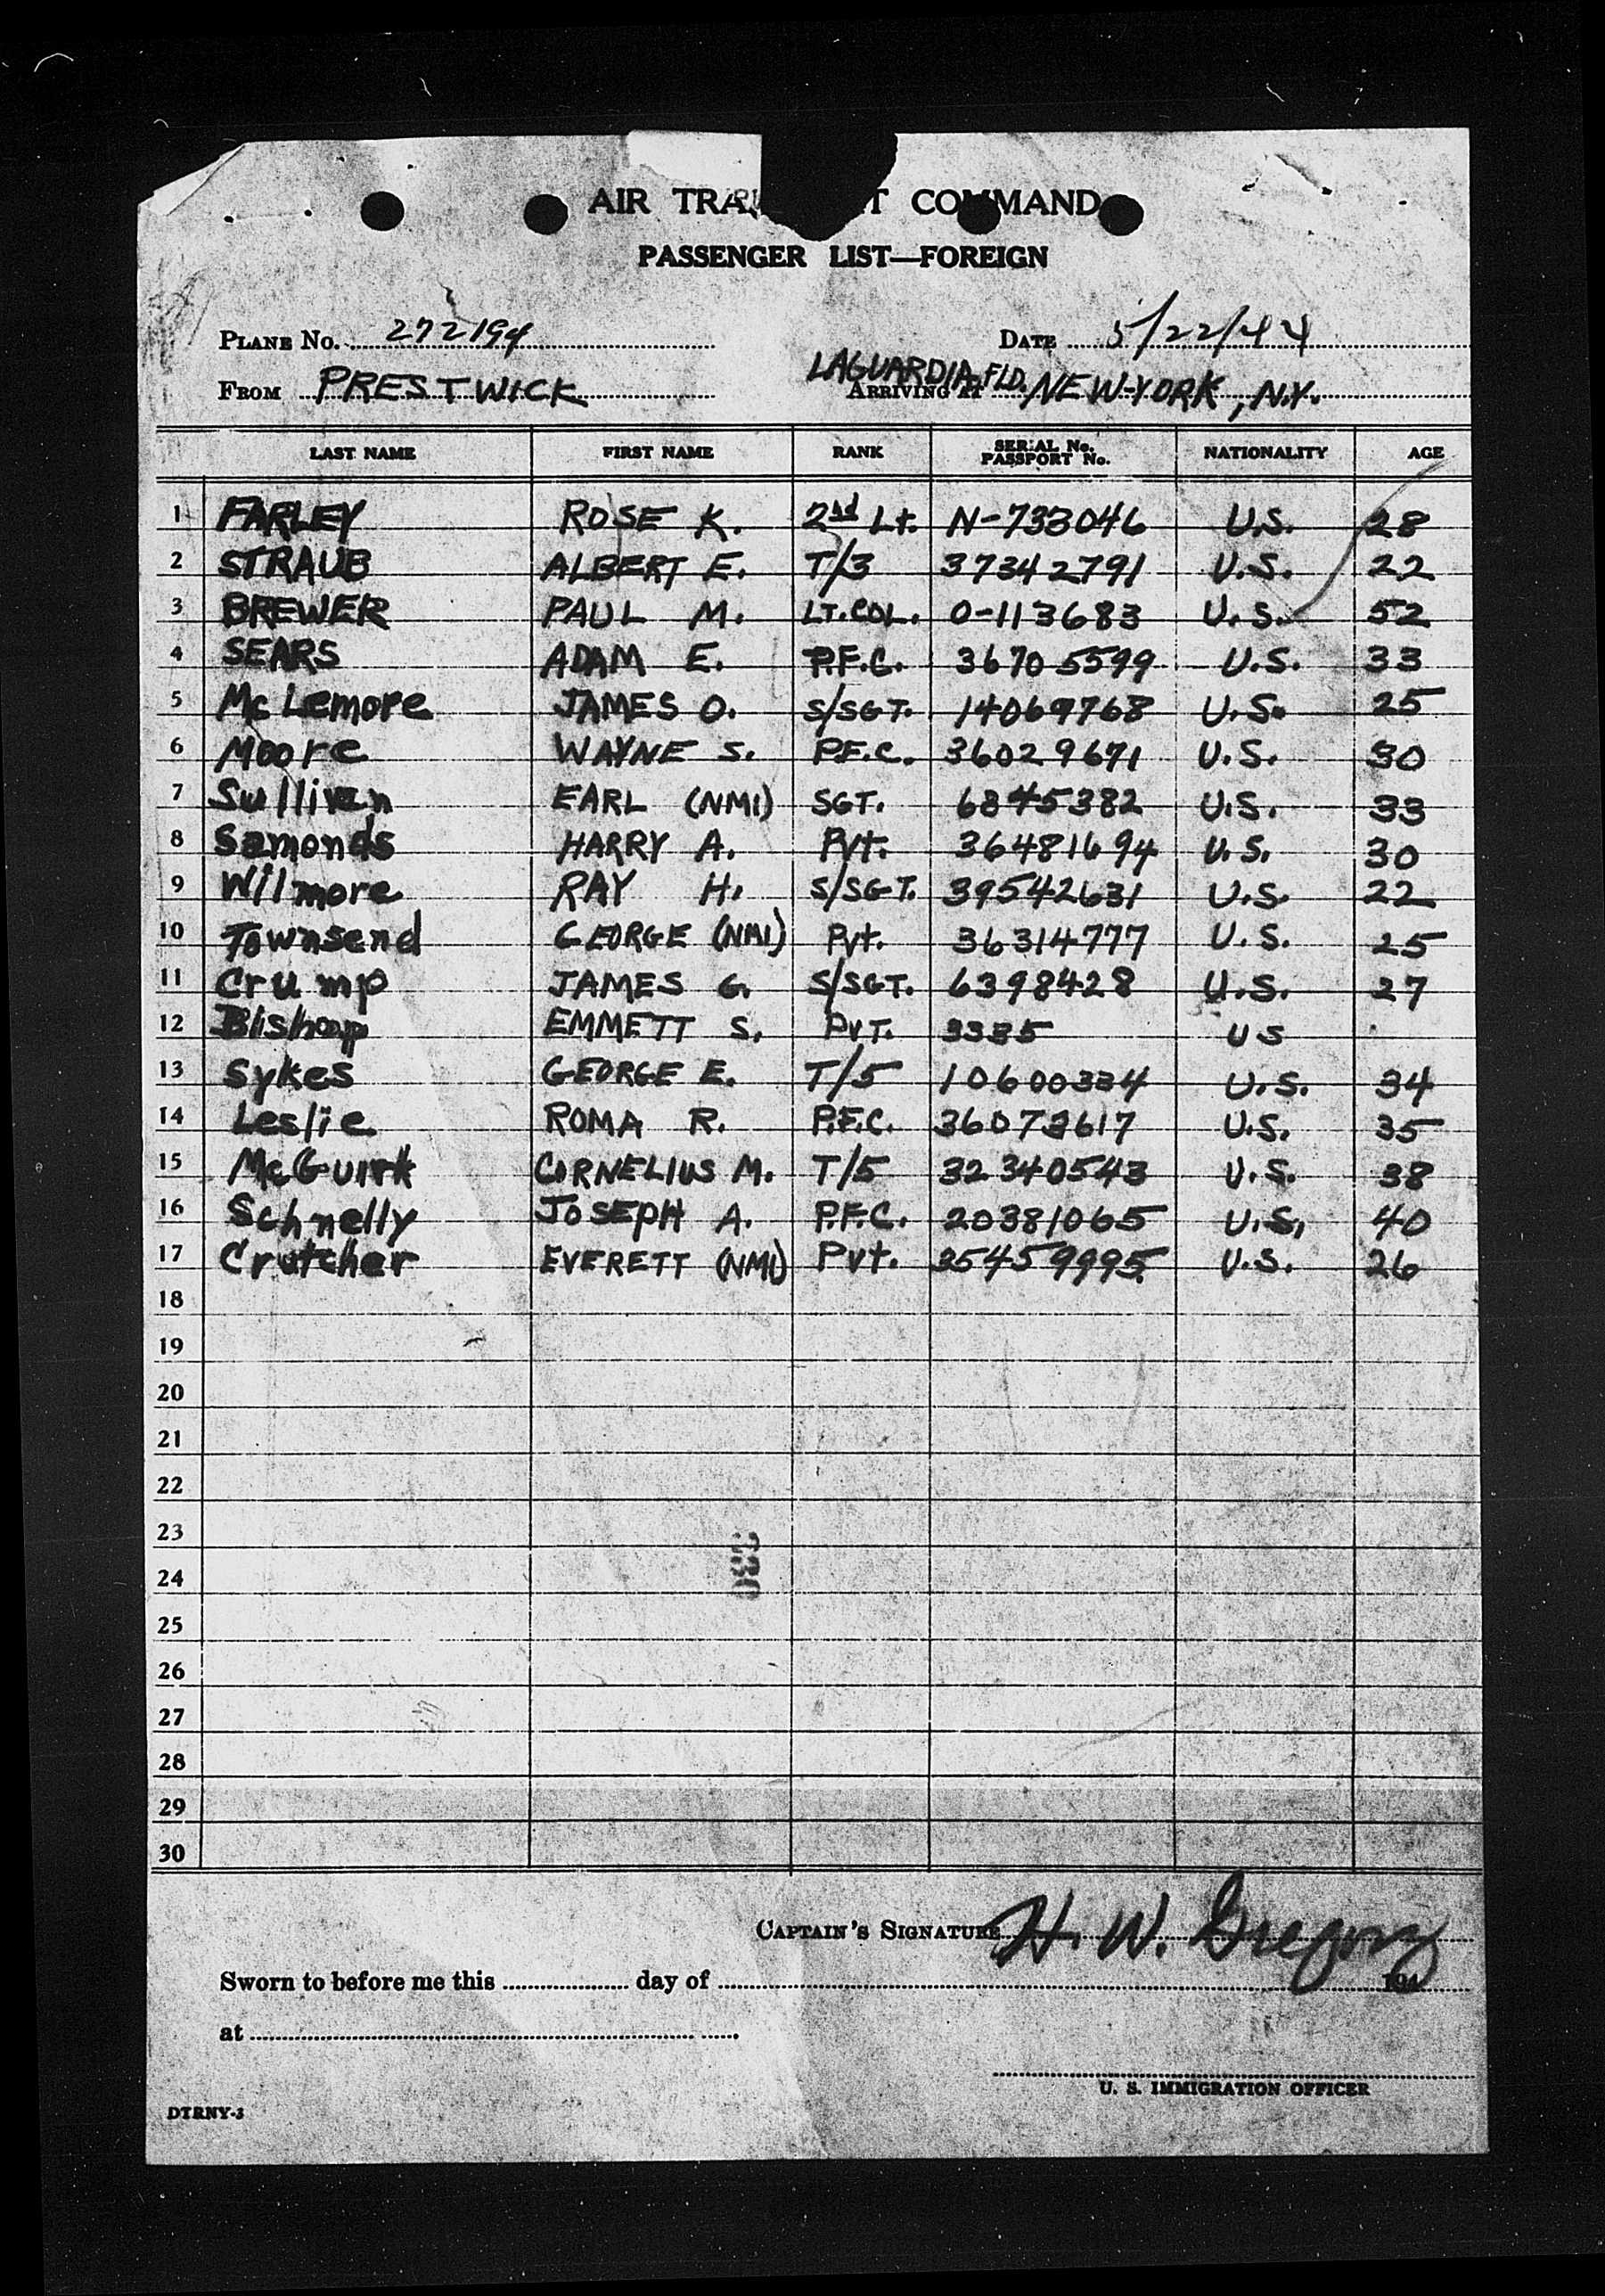 AIR TRA T COMMAND
PASSENGER LIST—FOREIGN
PLANE No. 272194 DATE 5/22/44
FROM PRESTWICK ARRIVING AT LAGUARDIA FLD. NEW-YORK, N.Y.
LAST NAME FIRST NAME RANK SERIAL No. PASSPORT No. NATIONALITY AGE
1 FARLEY ROSE K. 2nd Lt. N-733046 U.S. 28
2 STRAUB ALBERT E. T/3 37342791 U.S. 22
3 BREWER PAUL M. LT. COL. O-113683 U.S. 52
4 SEARS ADAM E. P.F.C. 36705599 U.S. 33
5 McLemore JAMES O. S/SGT. 14069768 U.S. 25
6 Moore WAYNE S. P.F.C. 36029671 U.S. 30
7 Sullivan EARL (NMI) SGT. 6845382 U.S. 33
8 Samonds HARRY A. Pvt. 36481694 U.S. 30
9 Wilmore RAY H. S/SGT. 39542631 U.S. 22
10 Townsend GEORGE (NMI) Pvt. 36314777 U.S. 25
11 Crump JAMES G. S/SGT. 6398428 U.S. 27
12 Bishop EMMETT S. PVT. 3335 US
13 Sykes GEORGE E. T/5 10600334 U.S. 34
14 Leslie ROMA R. P.F.C. 36073617 U.S. 35
15 McGuirk CORNELIUS M. T/5 32340543 U.S. 38
16 Schnelly JOSEPH A. P.F.C. 20381065 U.S. 40
17 Crutcher EVERETT (NMI) Pvt. 35459995 U.S. 26
18
19
20
21
22
23
24
25
26
27
28
29
30
CAPTAIN'S SIGNATURE H. W. Gregory
Sworn to before me this day of 194
at
U. S. IMMIGRATION OFFICER
DTRNY-3